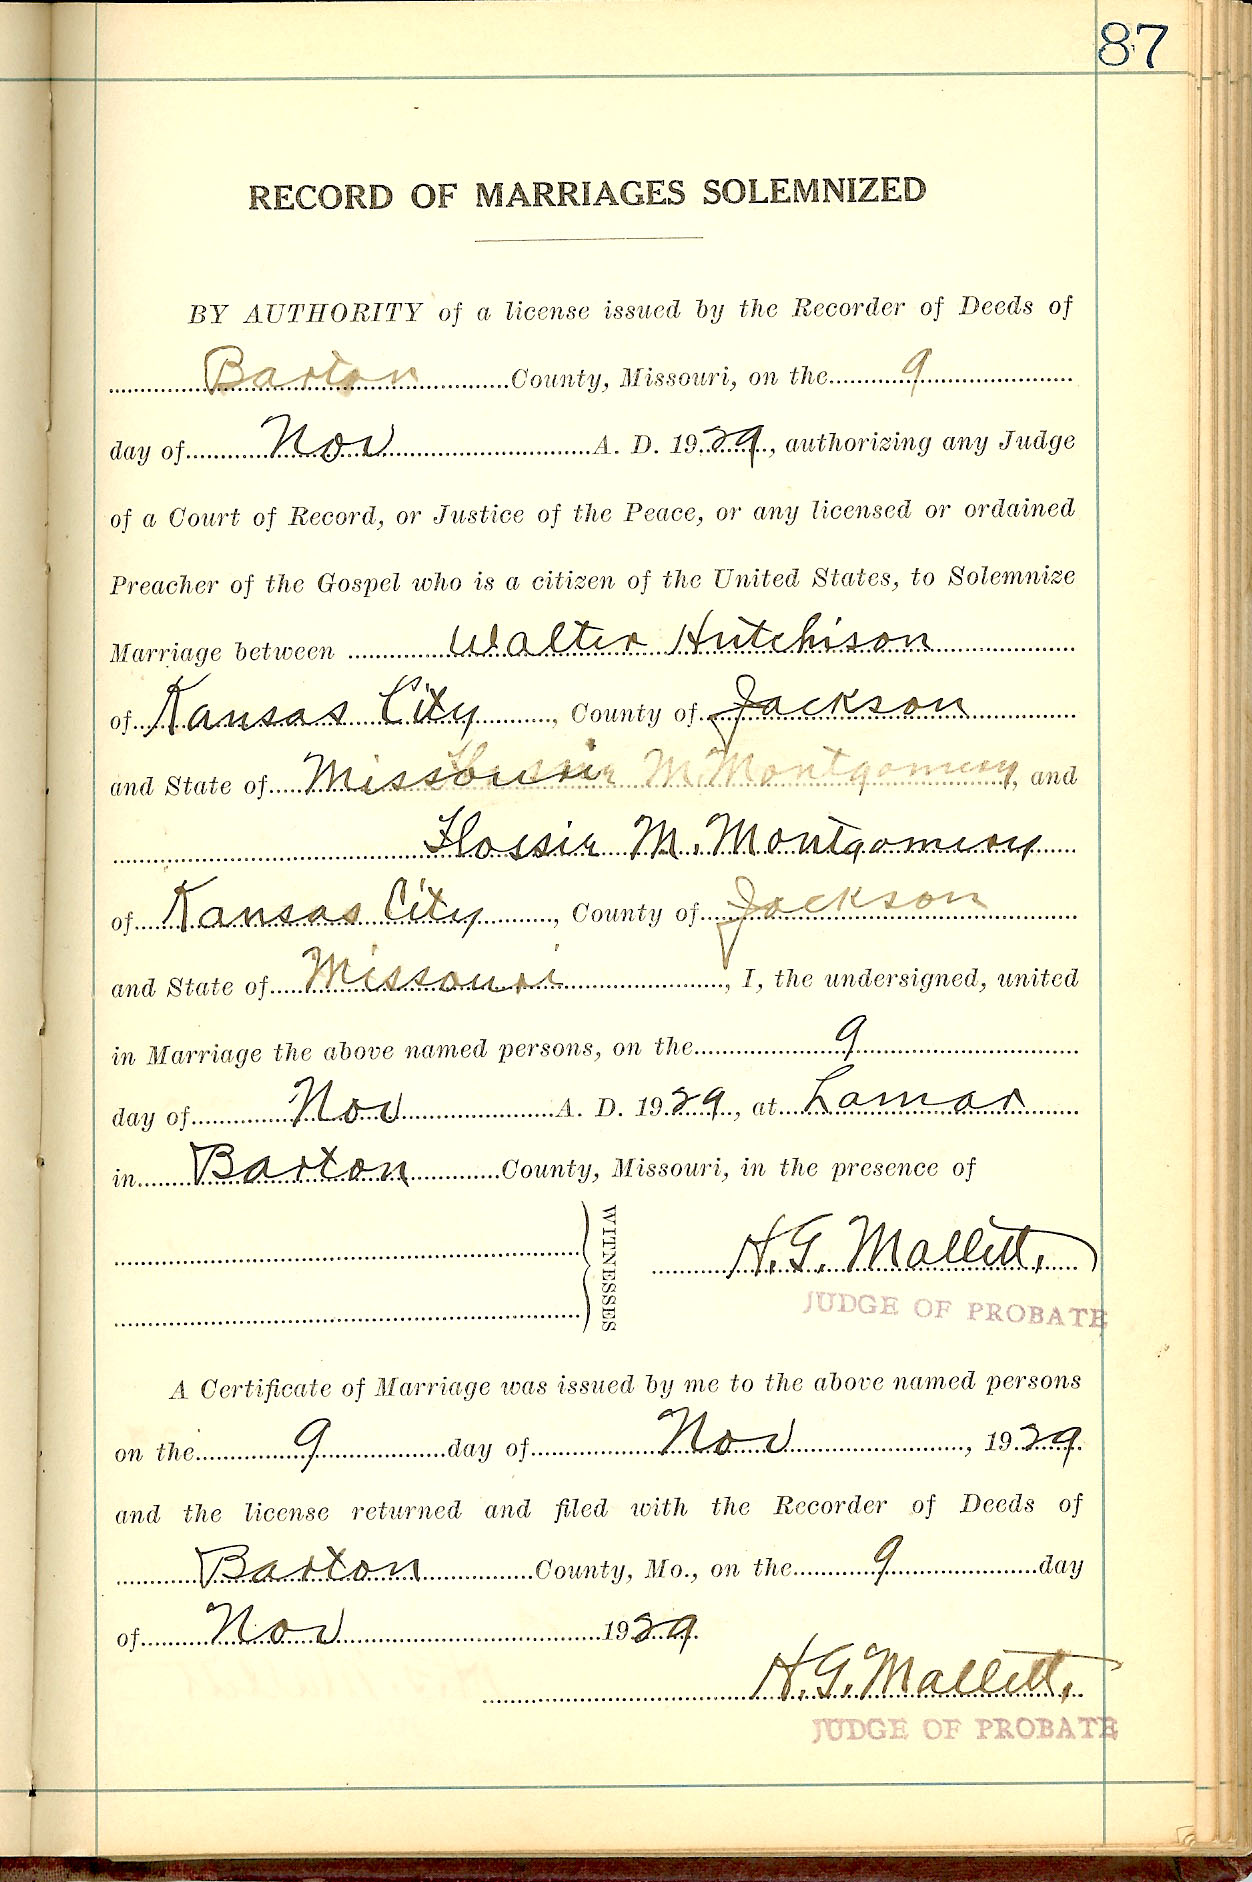 87
RECORD OF MARRIAGES SOLEMNIZED
BY AUTHORITY of a license issued by the Recorder of Deeds of
Barton County, Missouri, on the 9
day of Nov A. D. 1929, authorizing any Judge
of a Court of Record, or Justice of the Peace, or any licensed or ordained
Preacher of the Gospel who is a citizen of the United States, to Solemnize
Marriage between Walter Hutchison
of Kansas City, County of Jackson
and State of Missouri M. Montgomery, and
Flossie M. Montgomery
of Kansas City, County of Jackson
and State of Missouri, I, the undersigned, united
in Marriage the above named persons, on the 9
day of Nov A. D. 1929, at Lamar
in Barton County, Missouri, in the presence of
WITNESSES
H. G. Mallett.
JUDGE OF PROBATE
A Certificate of Marriage was issued by me to the above named persons
on the 9 day of Nov, 1929
and the license returned and filed with the Recorder of Deeds of
Barton County, Mo., on the 9 day
of Nov 1929.
H. G. Mallett.
JUDGE OF PROBATE